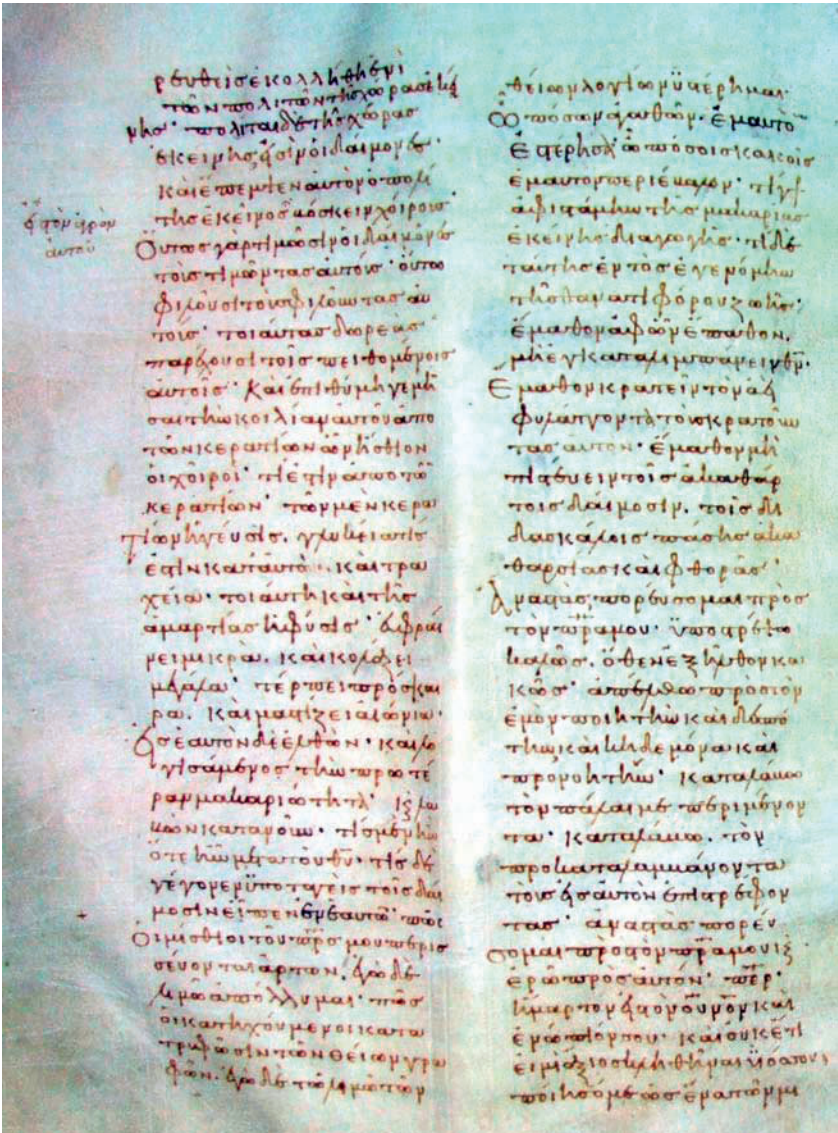 ρευθεὶς ἐκολλήθη ἑνὶ
τῶν πολιτῶν τῆς χώρας ἐκεί
νης· πολῖται δὲ τῆς χώρας
ἐκείνης, εἰσὶν οἱ δαίμονες·
καὶ ἔπεμψεν αὐτὸν ὁ πολί
της ἐκεῖνος βόσκειν χοίρους·
εἰς τὸν ἀγρὸν
αὐτοῦ
Οὕτως γὰρ τιμῶσιν οἱ δαίμονες
τοὺς τιμῶντας αὐτούς· οὕτω
φιλοῦσι τοὺς φιλοῦντας αὐ
τούς· τοιαύτας δωρεὰς
παρέχουσι τοῖς πειθομένοις
αὐτοῖς· Καὶ ἐπιθύμη γεμί
σαι τὴν κοιλίαν αὐτοῦ ἀπὸ
τῶν κερατίων ὧν ἤσθιον
οἱ χοῖροι· τί ἐστιν ἀπὸ τῶ
κερατίων· τῶν μὲν κερα
τίων ἡ γεῦσις, γλυκεῖά τίς
ἐστιν κατ αὐτὸ, καὶ τρα
χεῖα· τοιαύτη καὶ τῆς
ἁμαρτίας ἡ φύσις· εὐφραί
νει μικρὰ, καὶ κολάζει
μεγάλα· τέρπει πρόσκαι
ρα, καὶ μαστίζει αἰώνια·
Εἰς ἑαυτὸν δὲ ἐλθὼν· καὶ λο
γισάμενος τὴν προτέ
ραν μακαριότητα·
κατανοῶν· τίς μὲν ἦν
ὅτε ἦν μετὰ τοῦ θῦ· τίς δὲ
γέγονεν ὑποταγεὶς τοῖς δαί
μοσιν εἶπεν ἐν ἑαυτῶ· πόσοι
Οἱ μίσθιοι τοῦ πρς μου περισ
σεύονται ἄρτων, ἐγὼ δὲ
λιμῶ ἀπόλλυμαι· πῶς
οἱ κατηχούμενοι κατα
τρυφῶσιν τῶν θείων γρα
φῶν, ἐγὼ δὲ τῶ λιμῶ τῶν
θείων λογίων ὑστέρημαι·
Ὢ πόσων ἀγαθῶν· ἐμαυτὸ
ἐστέρησα ὢ πόσοις κακοῖς
ἐμαυτὸν περιέβαλον· τί γὰρ
ἀφιστάμην τῆς μακαρίας
ἐκείνης διαγωγῆς· τί δὲ
ταύτης ἐντὸς ἐγενόμην
τῆς θανατιφόρου ζωῆς·
ἔμαθον ἀφ ὧν ἔπαθον,
μὴ ἐγκαταλιμπάνειν θν·
Ἔμαθον κρατεῖν τὸν ἀεὶ
φυλάττοντα τοὺς κρατοῦν
τας αὐτὸν· ἔμαθον μὴ
πιστεύειν τοῖς ἀκαθάρ
τοις δαίμοσιν, τοῖς δι
δασκάλοις πάσης ἀκα
θαρσίας καὶ φθορᾶς·
Ἀναστὰς, πορεύσομαι πρὸς
τὸν πρα μου· ὑποστρέψω
καλῶς, ὅθεν ἐξῆλθον κα
κῶς· ἀπέλθω πρὸς τὸν
ἐμὸν ποιητὴν καὶ δεσπό
την καὶ κηδεμόνα καὶ
προνοητὴν· καταλάβω
τὸν πάλαι με περιμένον
τα· καταλάβω, τὸν
προκαταλαμβάνοντα
τοὺς εἰς αὐτὸν ἐπιστρέφον
τας· ἀναστὰς πορεύ
σομαι πρὸς τὸν πρα μου καὶ
ἐρῶ πρὸς αὐτόν· περ·
ἥμαρτον εἰς τὸν οὐνον καὶ
ἐνώπιόν σου· καὶ οὐκέτι
εἰμὶ ἄξιος κληθῆναι ὑιός σου
ποίησόν με ὡς ἕνα τῶν μι